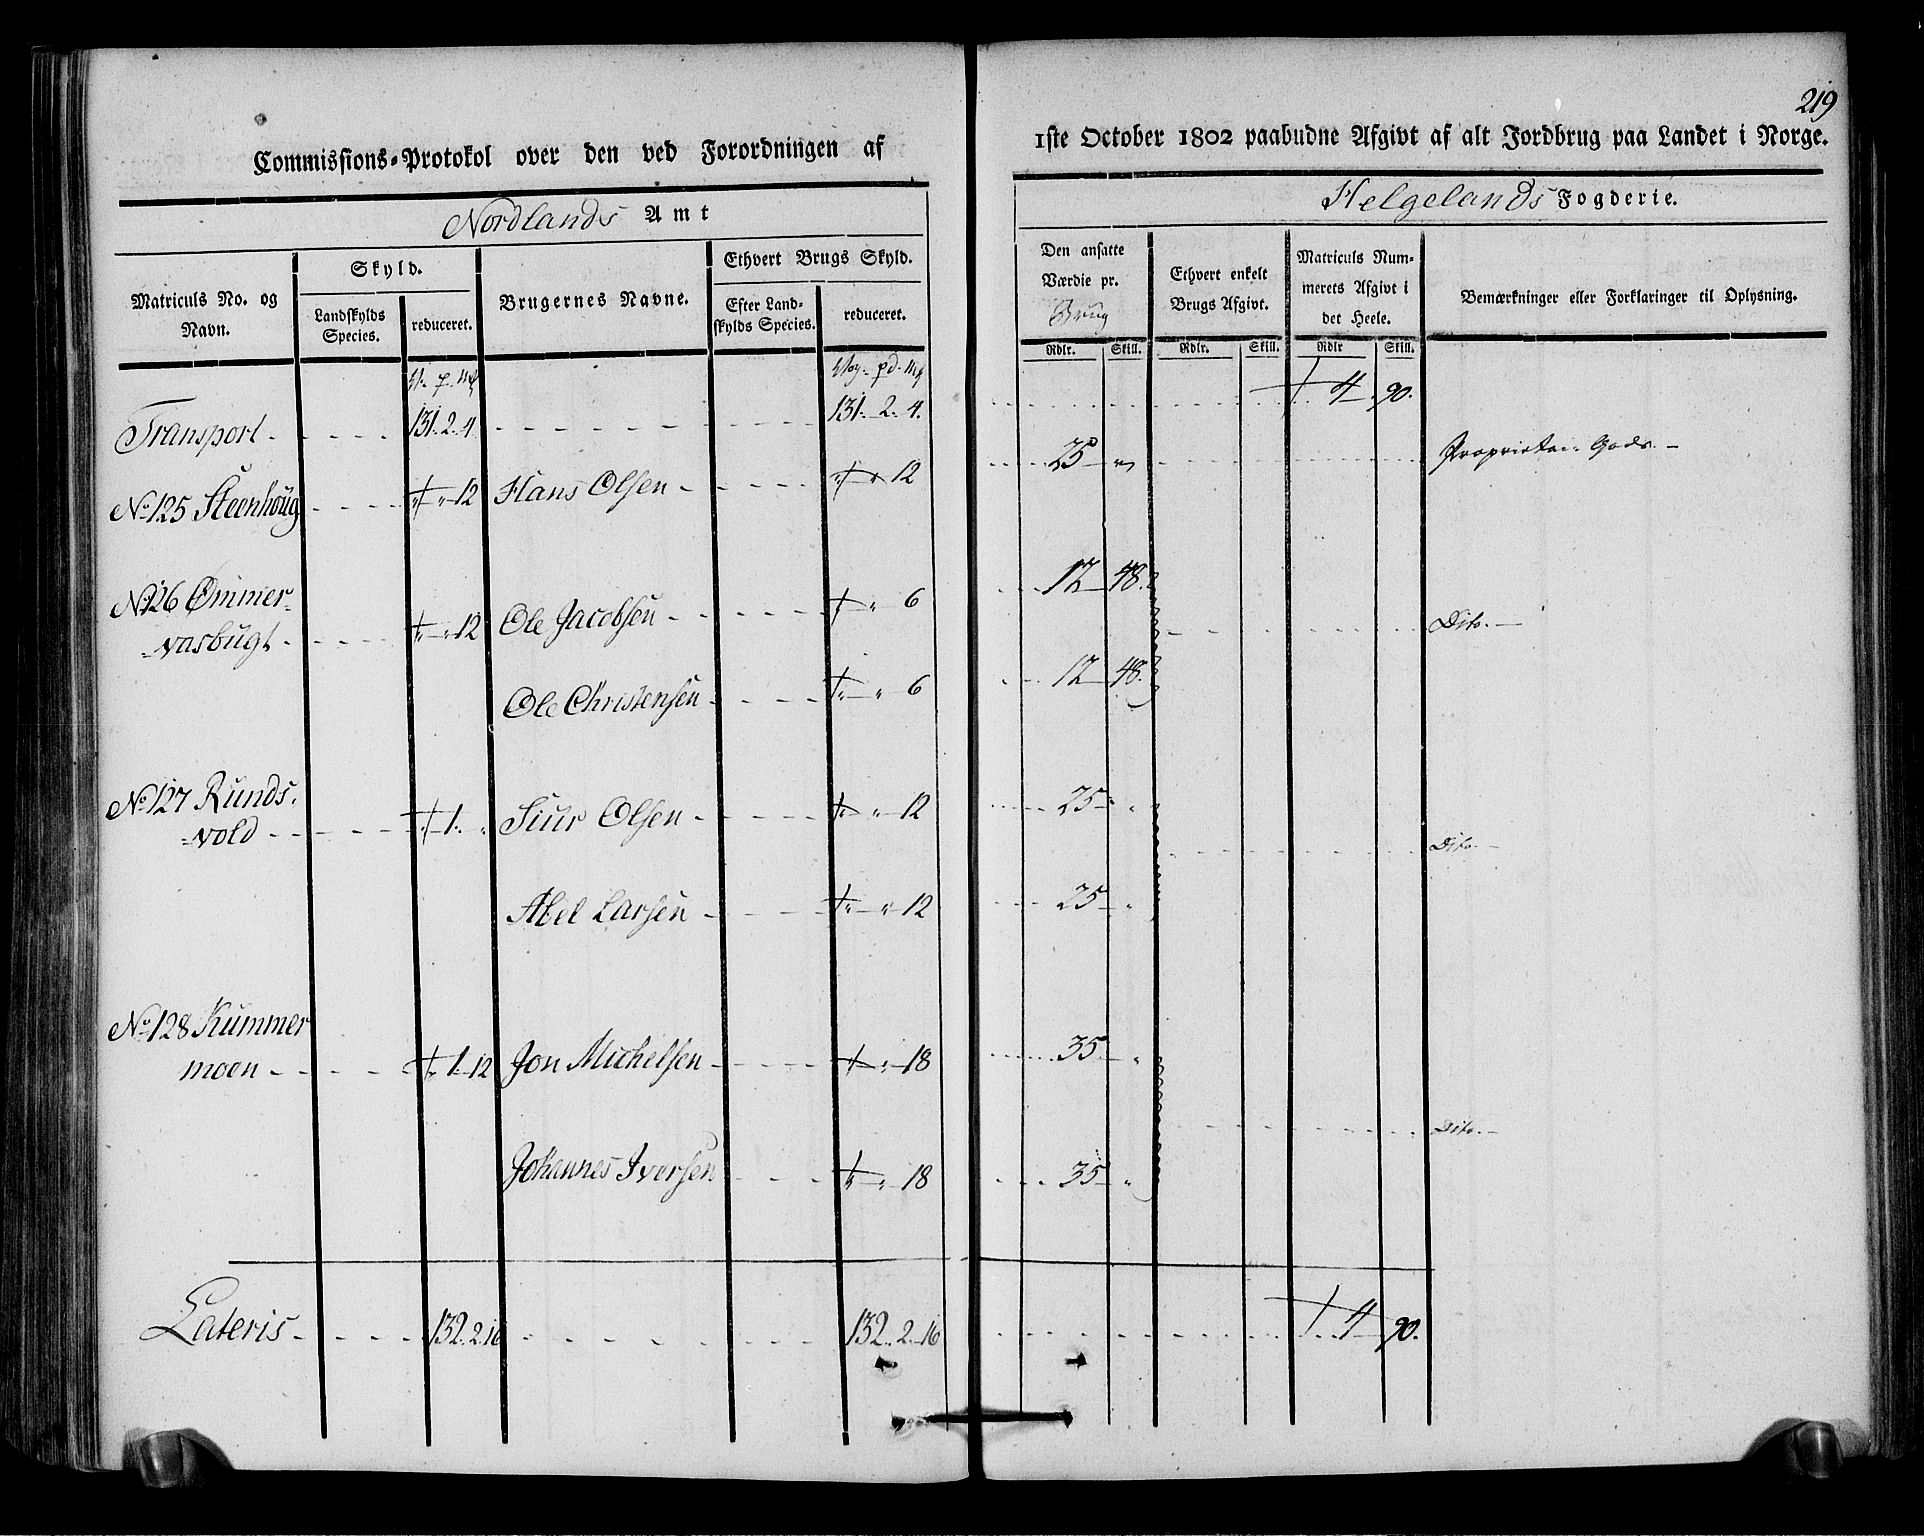 219
Commissions-Protokol over den ved Forordningen af 1ste October 1802 paabudne Afgivt af alt Jordbrug paa Landet i Norge.
Nordlands Amt
Helgelands Fogderie.
Matriculs No. og Navn.
Skyld.
Landskylds Species.
reduceret.
Brugernes Navne.
Ethvert Brugs Skyld.
Efter Landskylds Species.
reduceret.
Den ansatte Værdie pr. Brug
Rdlr. Skill.
Ethvert enkelt Brugs Afgivt.
Rdlr. Skill.
Matriculs Nummerets Afgivt i det Heele.
Rdlr Skill.
Bemærkninger eller Forklaringer til Oplysning.
Transport - - - - 131. 2. 4 - - - - 131. 2. 4. - - - - 4 90.
No 125 Steenhoug - - - 12 Hans Olsen - - - - 12 - - 25 " - - - Proprietair Gods. -
No 126 Ømmer-
-vasbugt - - - - 12 Ole Jacobsen - - - - " 6 - - 12 48. - - - Dito. -
Ole Christensen - - - " " 6 - - 12 48.
No 127 Runds-
-vold - - - - 1. " Siur Olsen - - - - " " 12 - - 25 " - - - Dito. -
Abel Larsen - - - - " " 12 - - 25 "
No 128 Kummer
moen - - - - 1 12 Jon Michelsen - - - - " 18 - - 35 " - - - Dito. -
Johannes Iversen - - - " " 18 - - 35 "
Lateris - - - - 132. 2. 16 - - - - 132. 2. 16 - - - - 4 90.